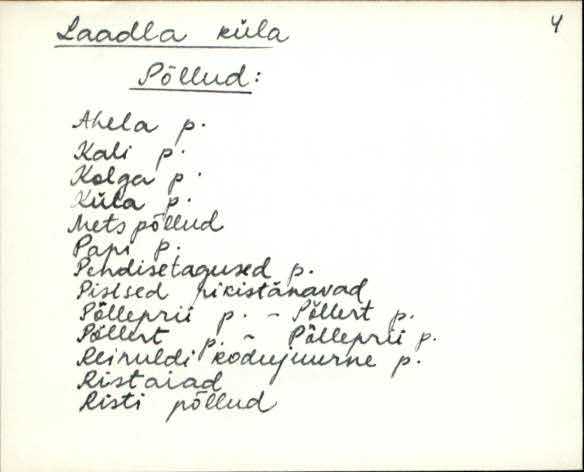 Laadla küla 4
Põllud:
Ahela p.
Kali p.
Kolga p.
Küla p.
Metspõllud
Papi p.
Pendisetagused p.
Pisised rikistänavad
Põlleprii p. - Põllert p.
Põllert p. - Põlleprii p.
Reinuldi kodujuurne p.
Ristaiad
Risti põllud